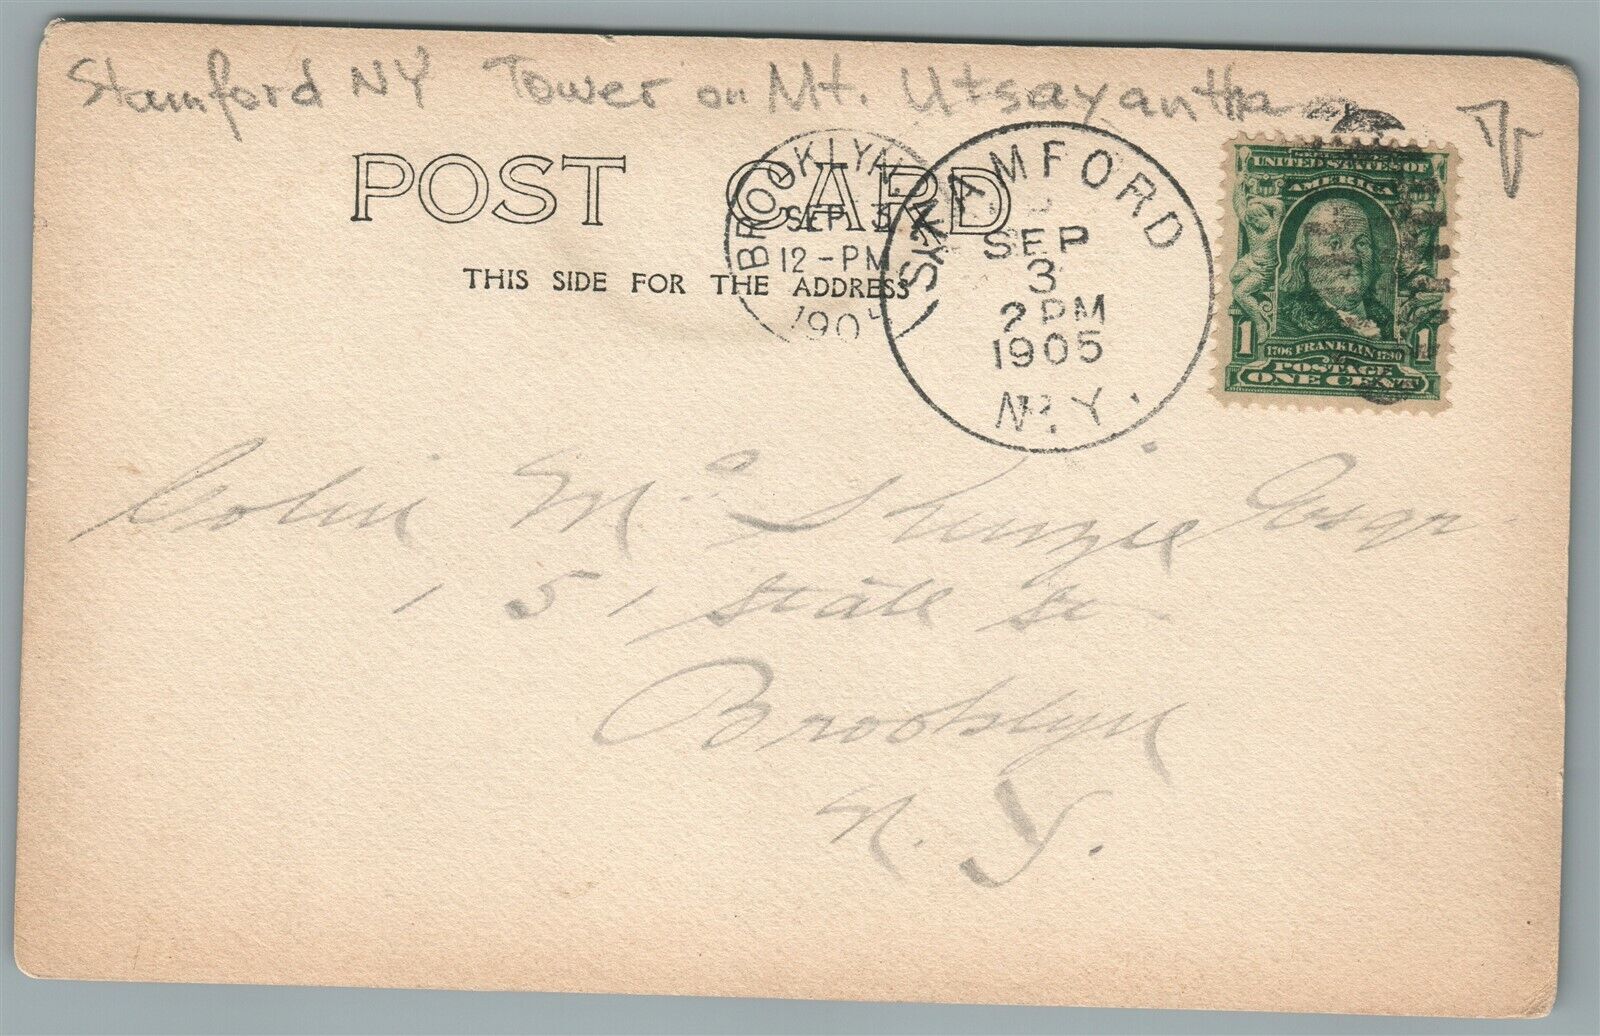 Stamford NY Tower on Mt. Utsayantha
POST CARD
THIS SIDE FOR THE ADDRESS
BROOKLYN, N.Y.
SEP 3
12-PM
1905
STAMFORD
SEP
3
2 PM
1905
N.Y.
UNITED STATES OF
AMERICA
1 1706 FRANKLIN 1790 1
POSTAGE
ONE CENT
Colin McKenzie Esqr
151 State St
Brooklyn
N.Y.